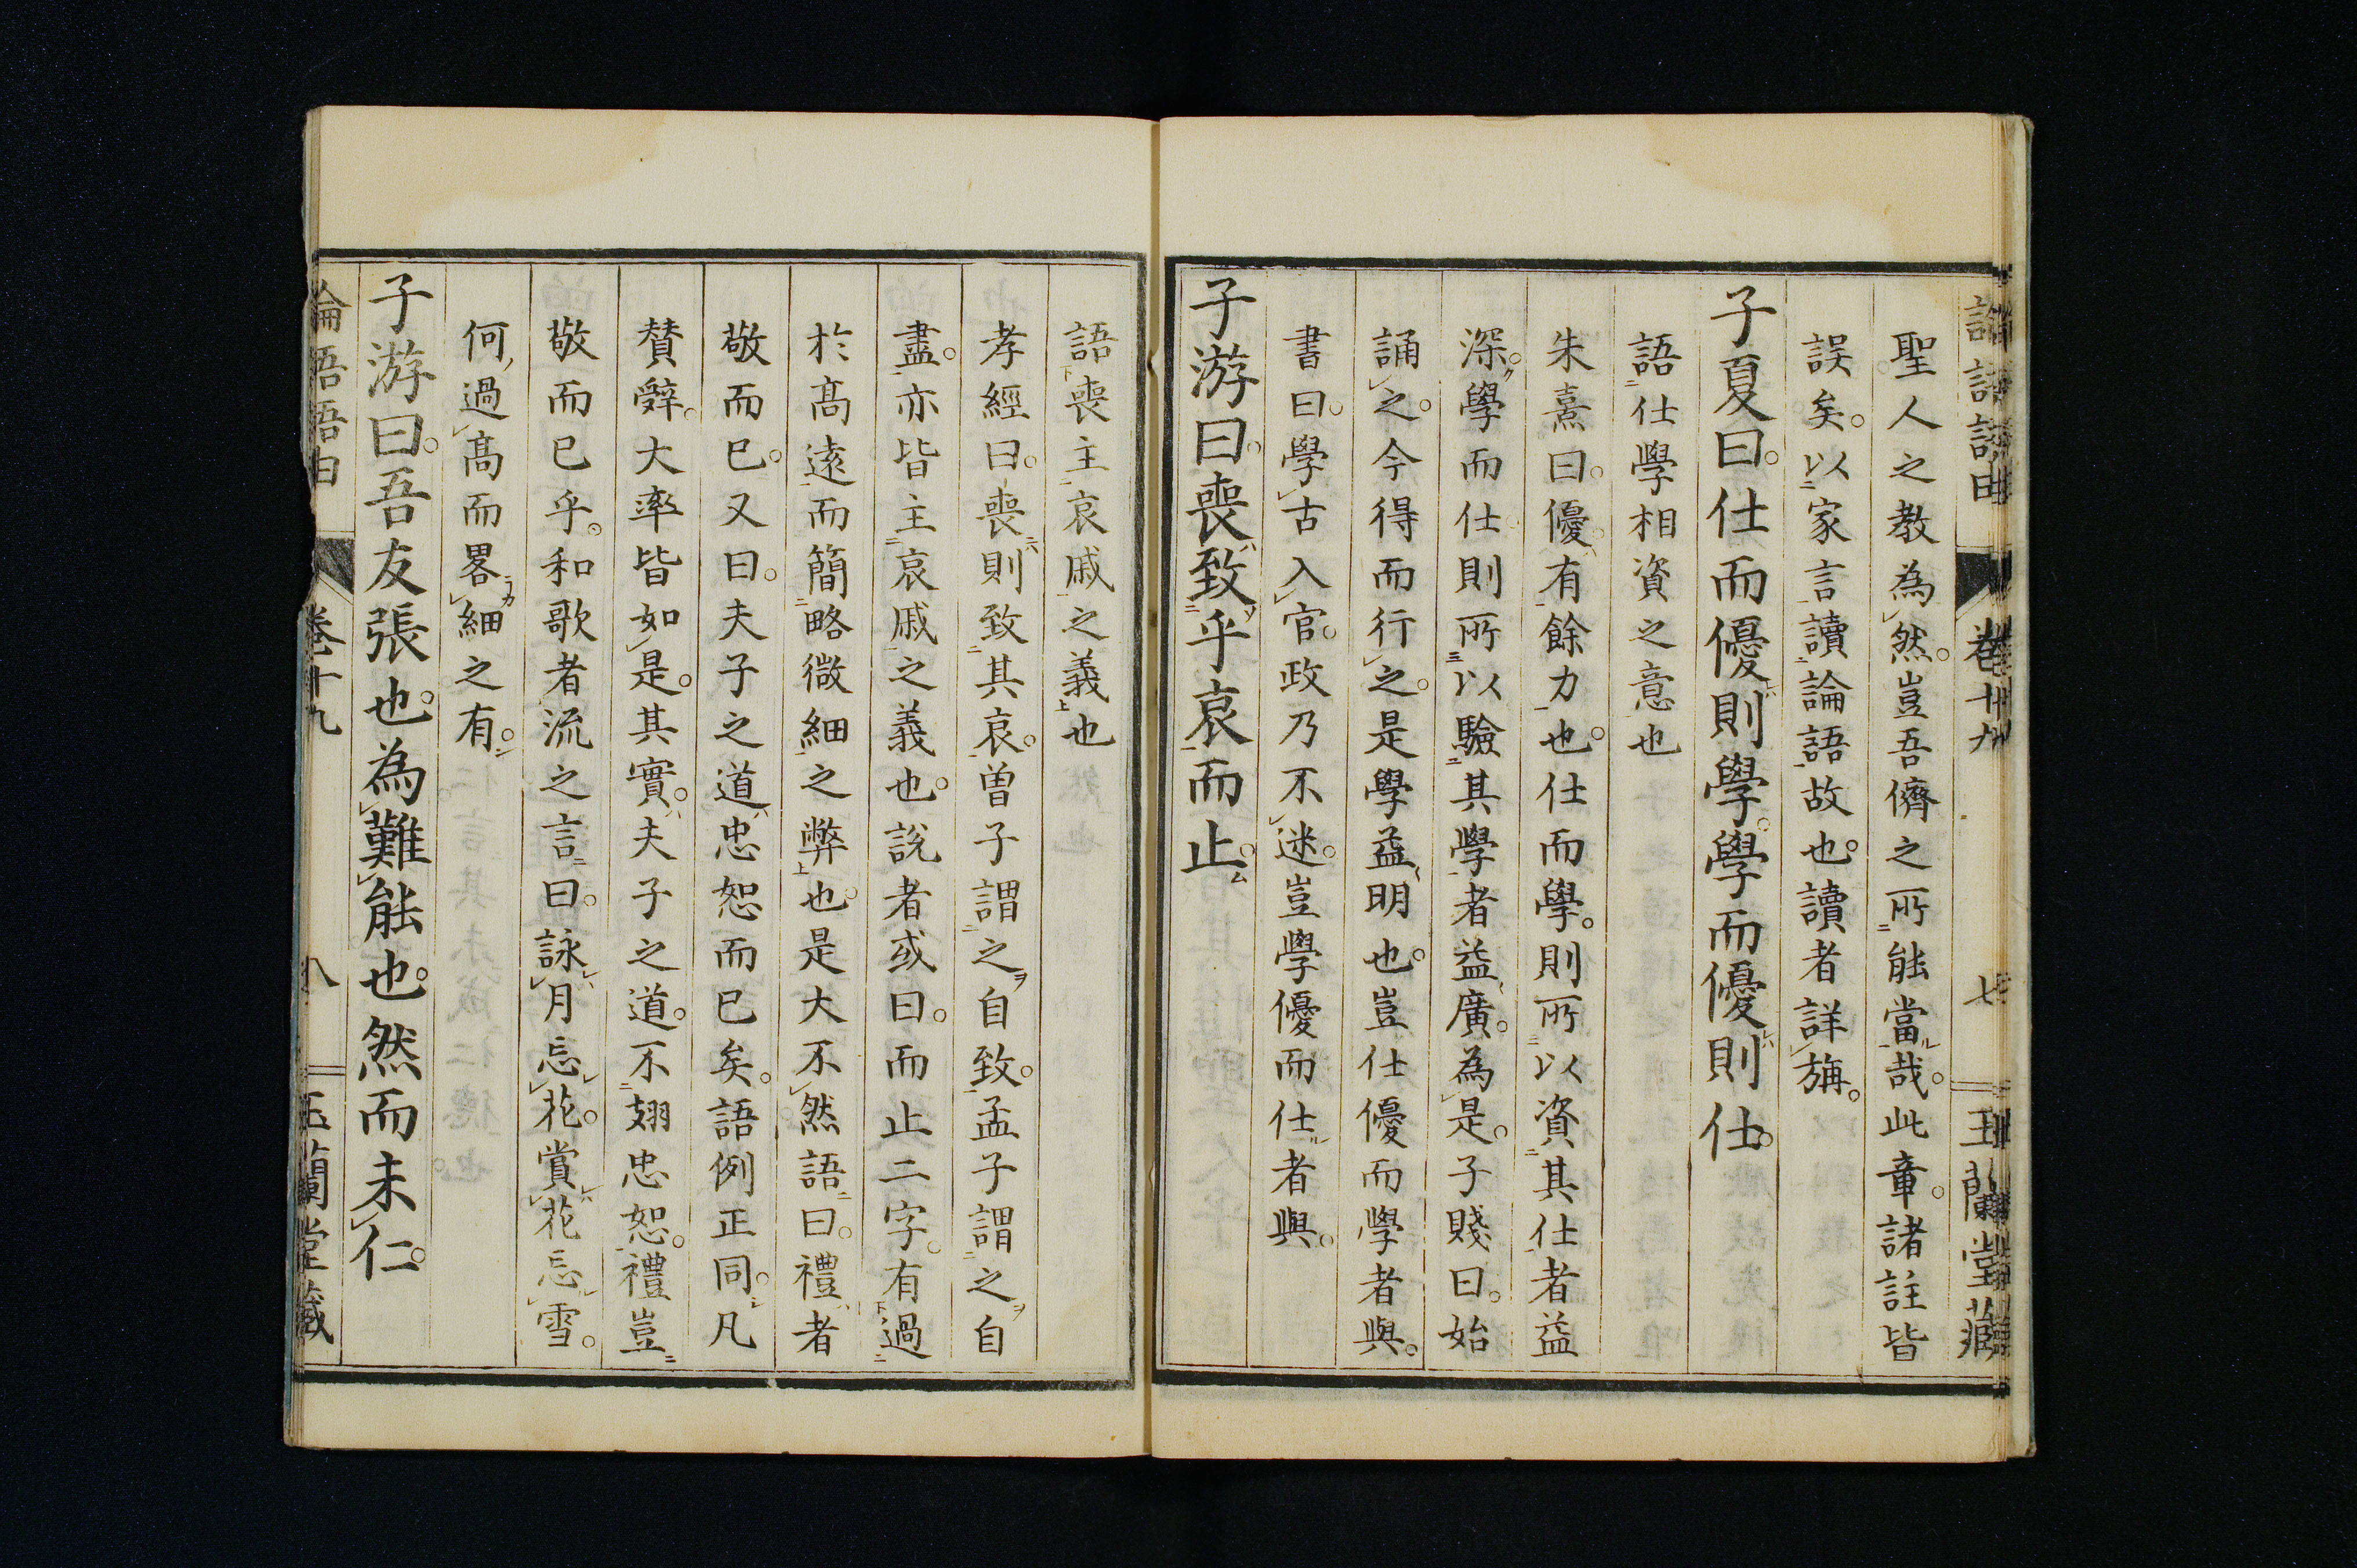 論語語由 卷十九 七 玉蘭堂藏
聖人之教為然。豈吾儕之所能當哉。此章。諸註皆
誤矣。以家言讀論語故也。讀者詳旃。
子夏曰。仕而優則學。學而優則仕。
語仕學相資之意也
朱熹曰。優有餘力也。仕而學。則所以資其仕者益
深。學而仕則所以驗其學者益廣。為是。子賤曰。始
誦之。今得而行之。是學益明也。豈仕優而學者與。
書曰。學古入官。政乃不迷。豈學優而仕者與。
子游曰。喪致乎哀而止。
語喪主哀戚之義也
孝經曰。喪則致其哀。曽子謂之自致。孟子謂之自
盡。亦皆主哀戚之義也。說者或曰。而止二字。有過
於高遠而簡略微細之弊也。是大不然語曰。禮者
敬而已。又曰。夫子之道忠恕而已矣。語例正同。凡
賛辭。大率皆如是。其實。夫子之道。不翅忠恕。禮豈
敬而已乎。和歌者流之言曰。詠月忘花。賞花忘雪。
何過高而畧細之有。
子游曰。吾友張也。為難能也。然而未仁。
論語語由 卷十九 八 玉蘭堂藏